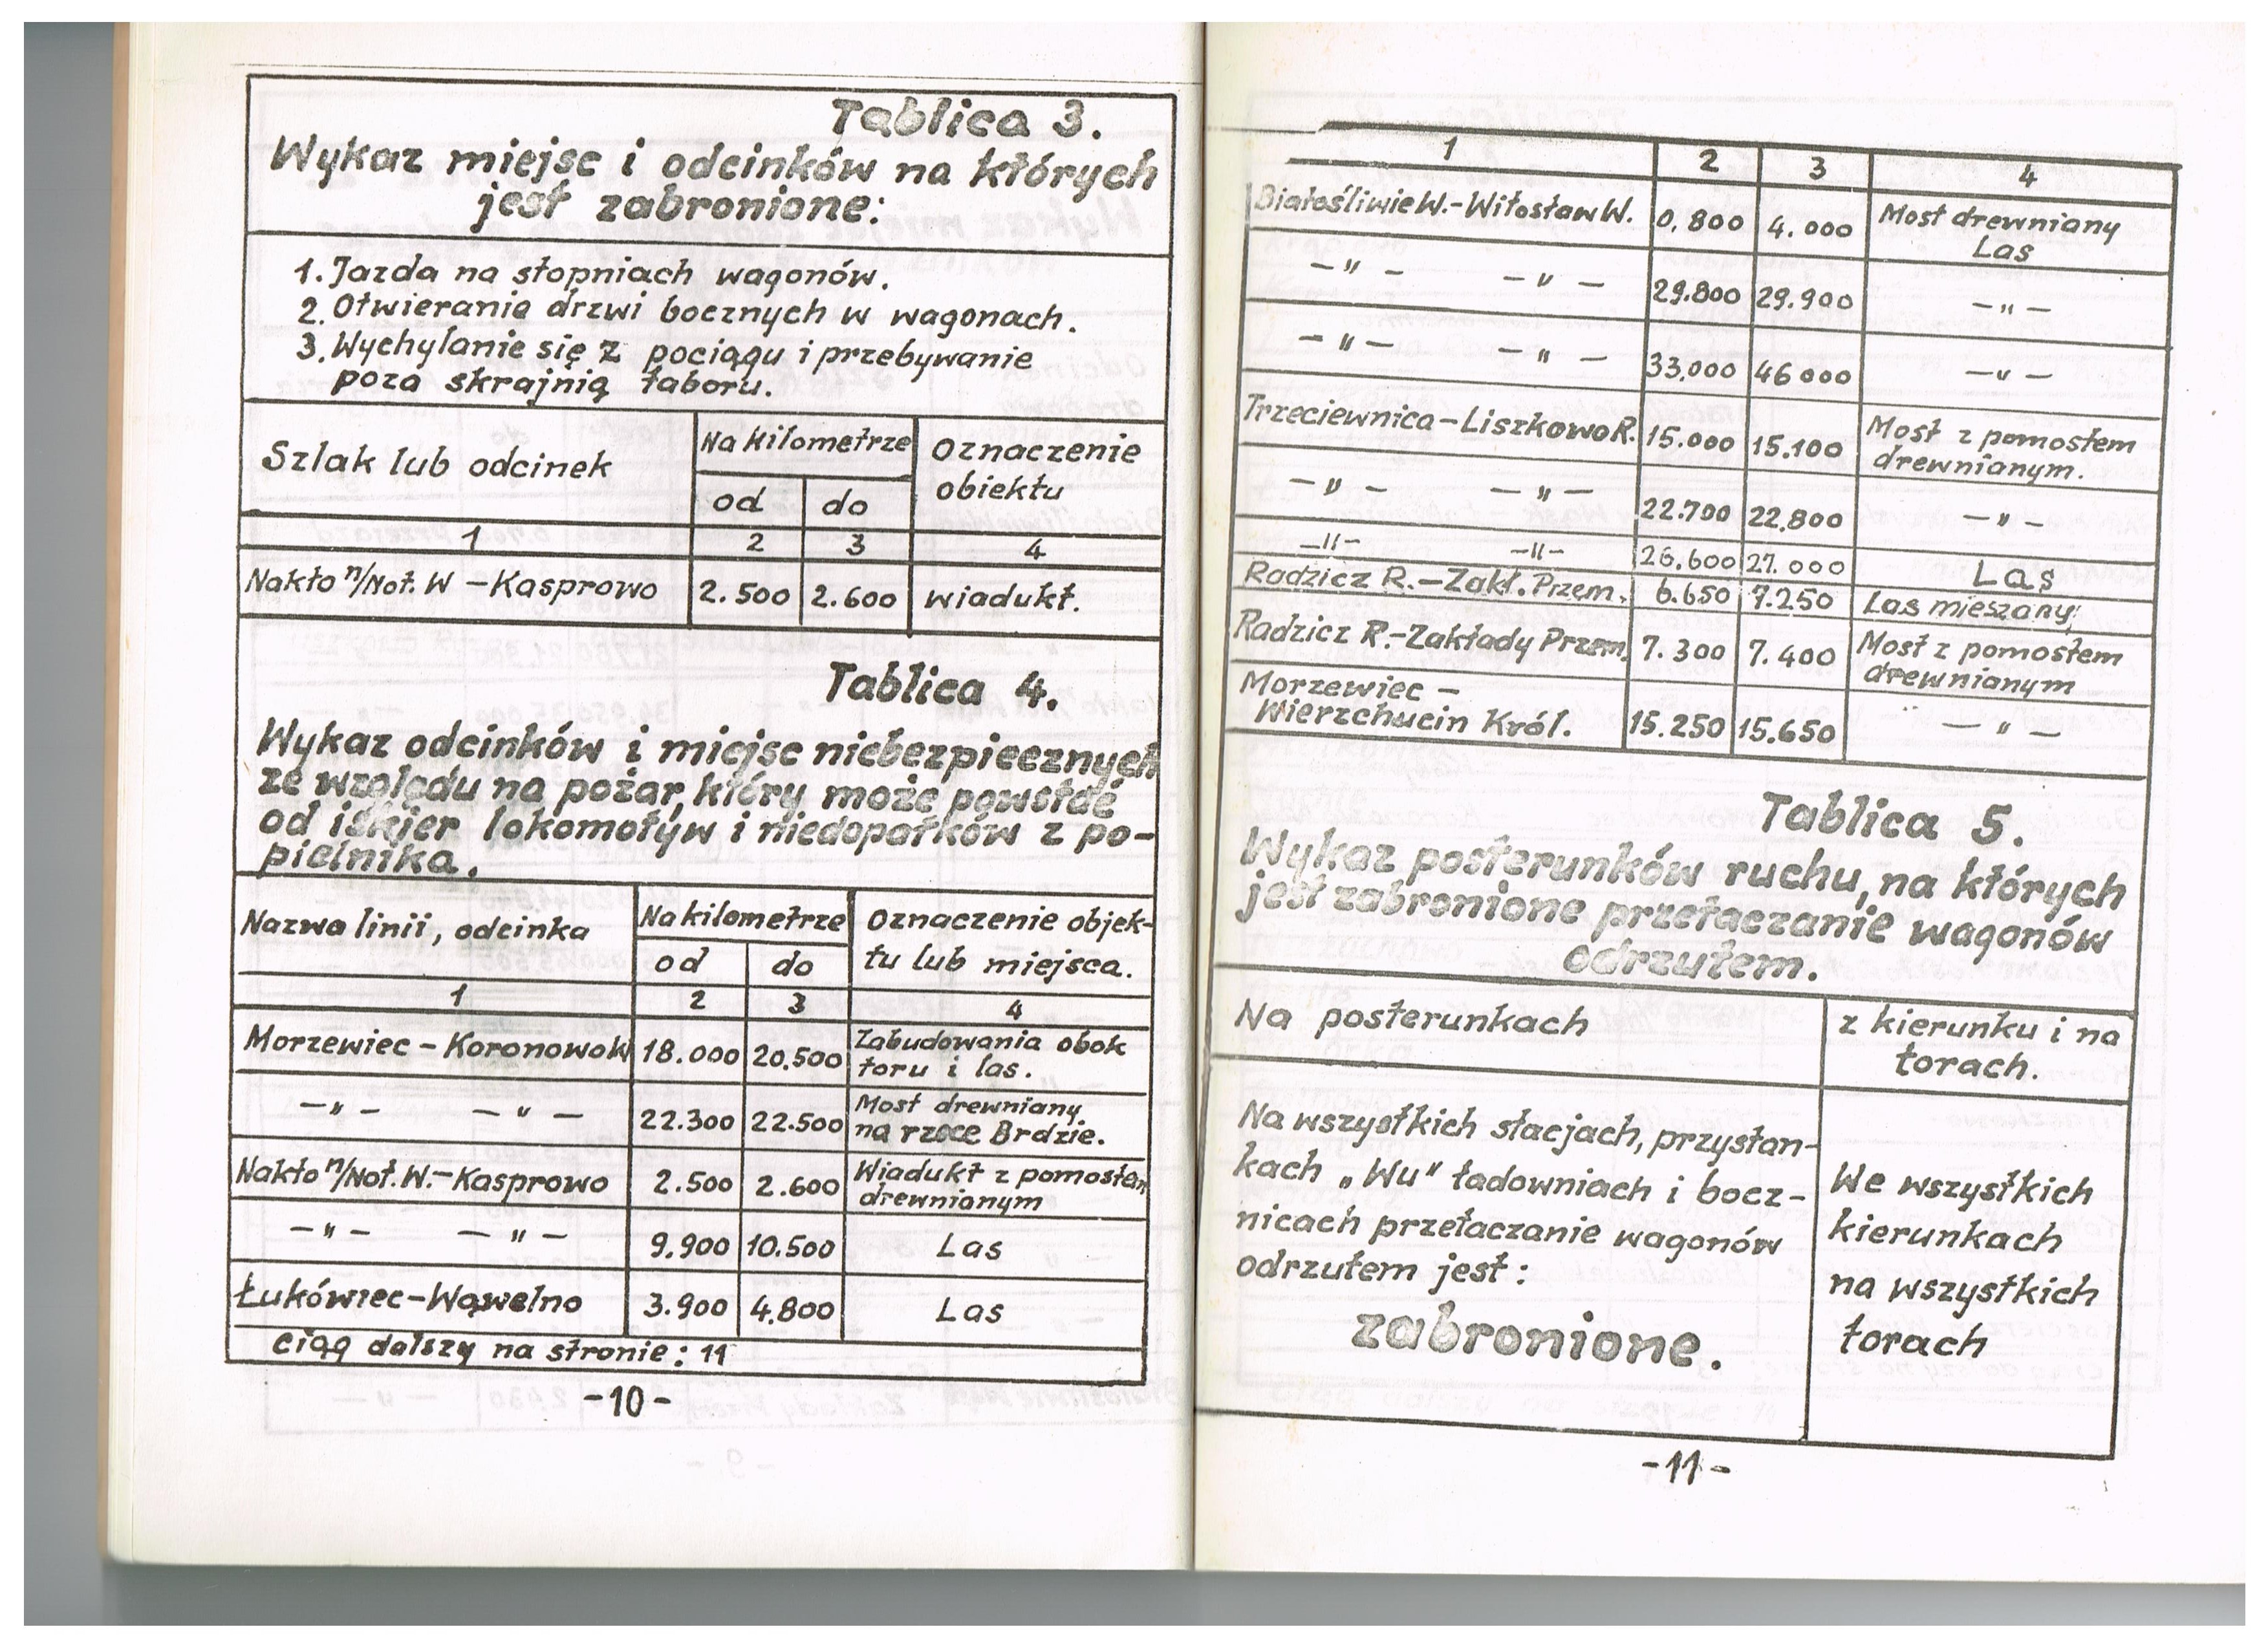 Tablica 3.
Wykaz miejsc i odcinków na których
jest zabronione:
1. Jazda na stopniach wagonów.
2. Otwieranie drzwi bocznych w wagonach.
3. Wychylanie się z pociągu i przebywanie
poza skrajnią taboru.
Szlak lub odcinek Na kilometrze Oznaczenie
od do obiektu
1 2 3 4
Nakło n/Not. W - Kasprowo 2.500 2.600 wiadukt.
Tablica 4.
Wykaz odcinków i miejsc niebezpiecznych
ze względu na pożar, który może powstać
od iskier lokomotyw i niedopałków z po-
pielnika.
Nazwa linii, odcinka Na kilometrze Oznaczenie objek-
od do tu lub miejsca.
1 2 3 4
Morzewiec - Koronowo W 18.000 20.500 Zabudowania obok
toru i las.
-„- -„- 22.300 22.500 Most drewniany
na rzece Brdzie.
Nakło n/Not. W. - Kasprowo 2.500 2.600 Wiadukt z pomostem
drewnianym
-„- -„- 9.900 10.500 Las
Łukówiec - Wąwelno 3.900 4.800 Las
ciąg dalszy na stronie: 11
-10-
1 2 3 4
Białośliwie W. - Witosław W. 0.800 4.000 Most drewniany
Las
-„- -„- 29.800 29.900 -„-
-„- -„- 33.000 46 000 -„-
Trzeciewnica - Liszkowo R. 15.000 15.100 Most z pomostem
drewnianym.
-„- -„- 22.700 22.800 -„-
-„- -„- 26.600 27.000 Las
Radzicz R. - Zakł. Przem. 6.650 7.250 Las mieszany
Radzicz R. - Zakłady Przem. 7.300 7.400 Most z pomostem
drewnianym
Morzewiec -
Wierzchucin Król. 15.250 15.650 -„-
Tablica 5.
Wykaz posterunków ruchu, na których
jest zabronione przetaczanie wagonów
odrzutem.
Na posterunkach z kierunku i na
torach.
Na wszystkich stacjach, przystan-
kach „Wu" ładowniach i bocz-
nicach przetaczanie wagonów
odrzutem jest:
zabronione.
We wszystkich
kierunkach
na wszystkich
torach
-11-